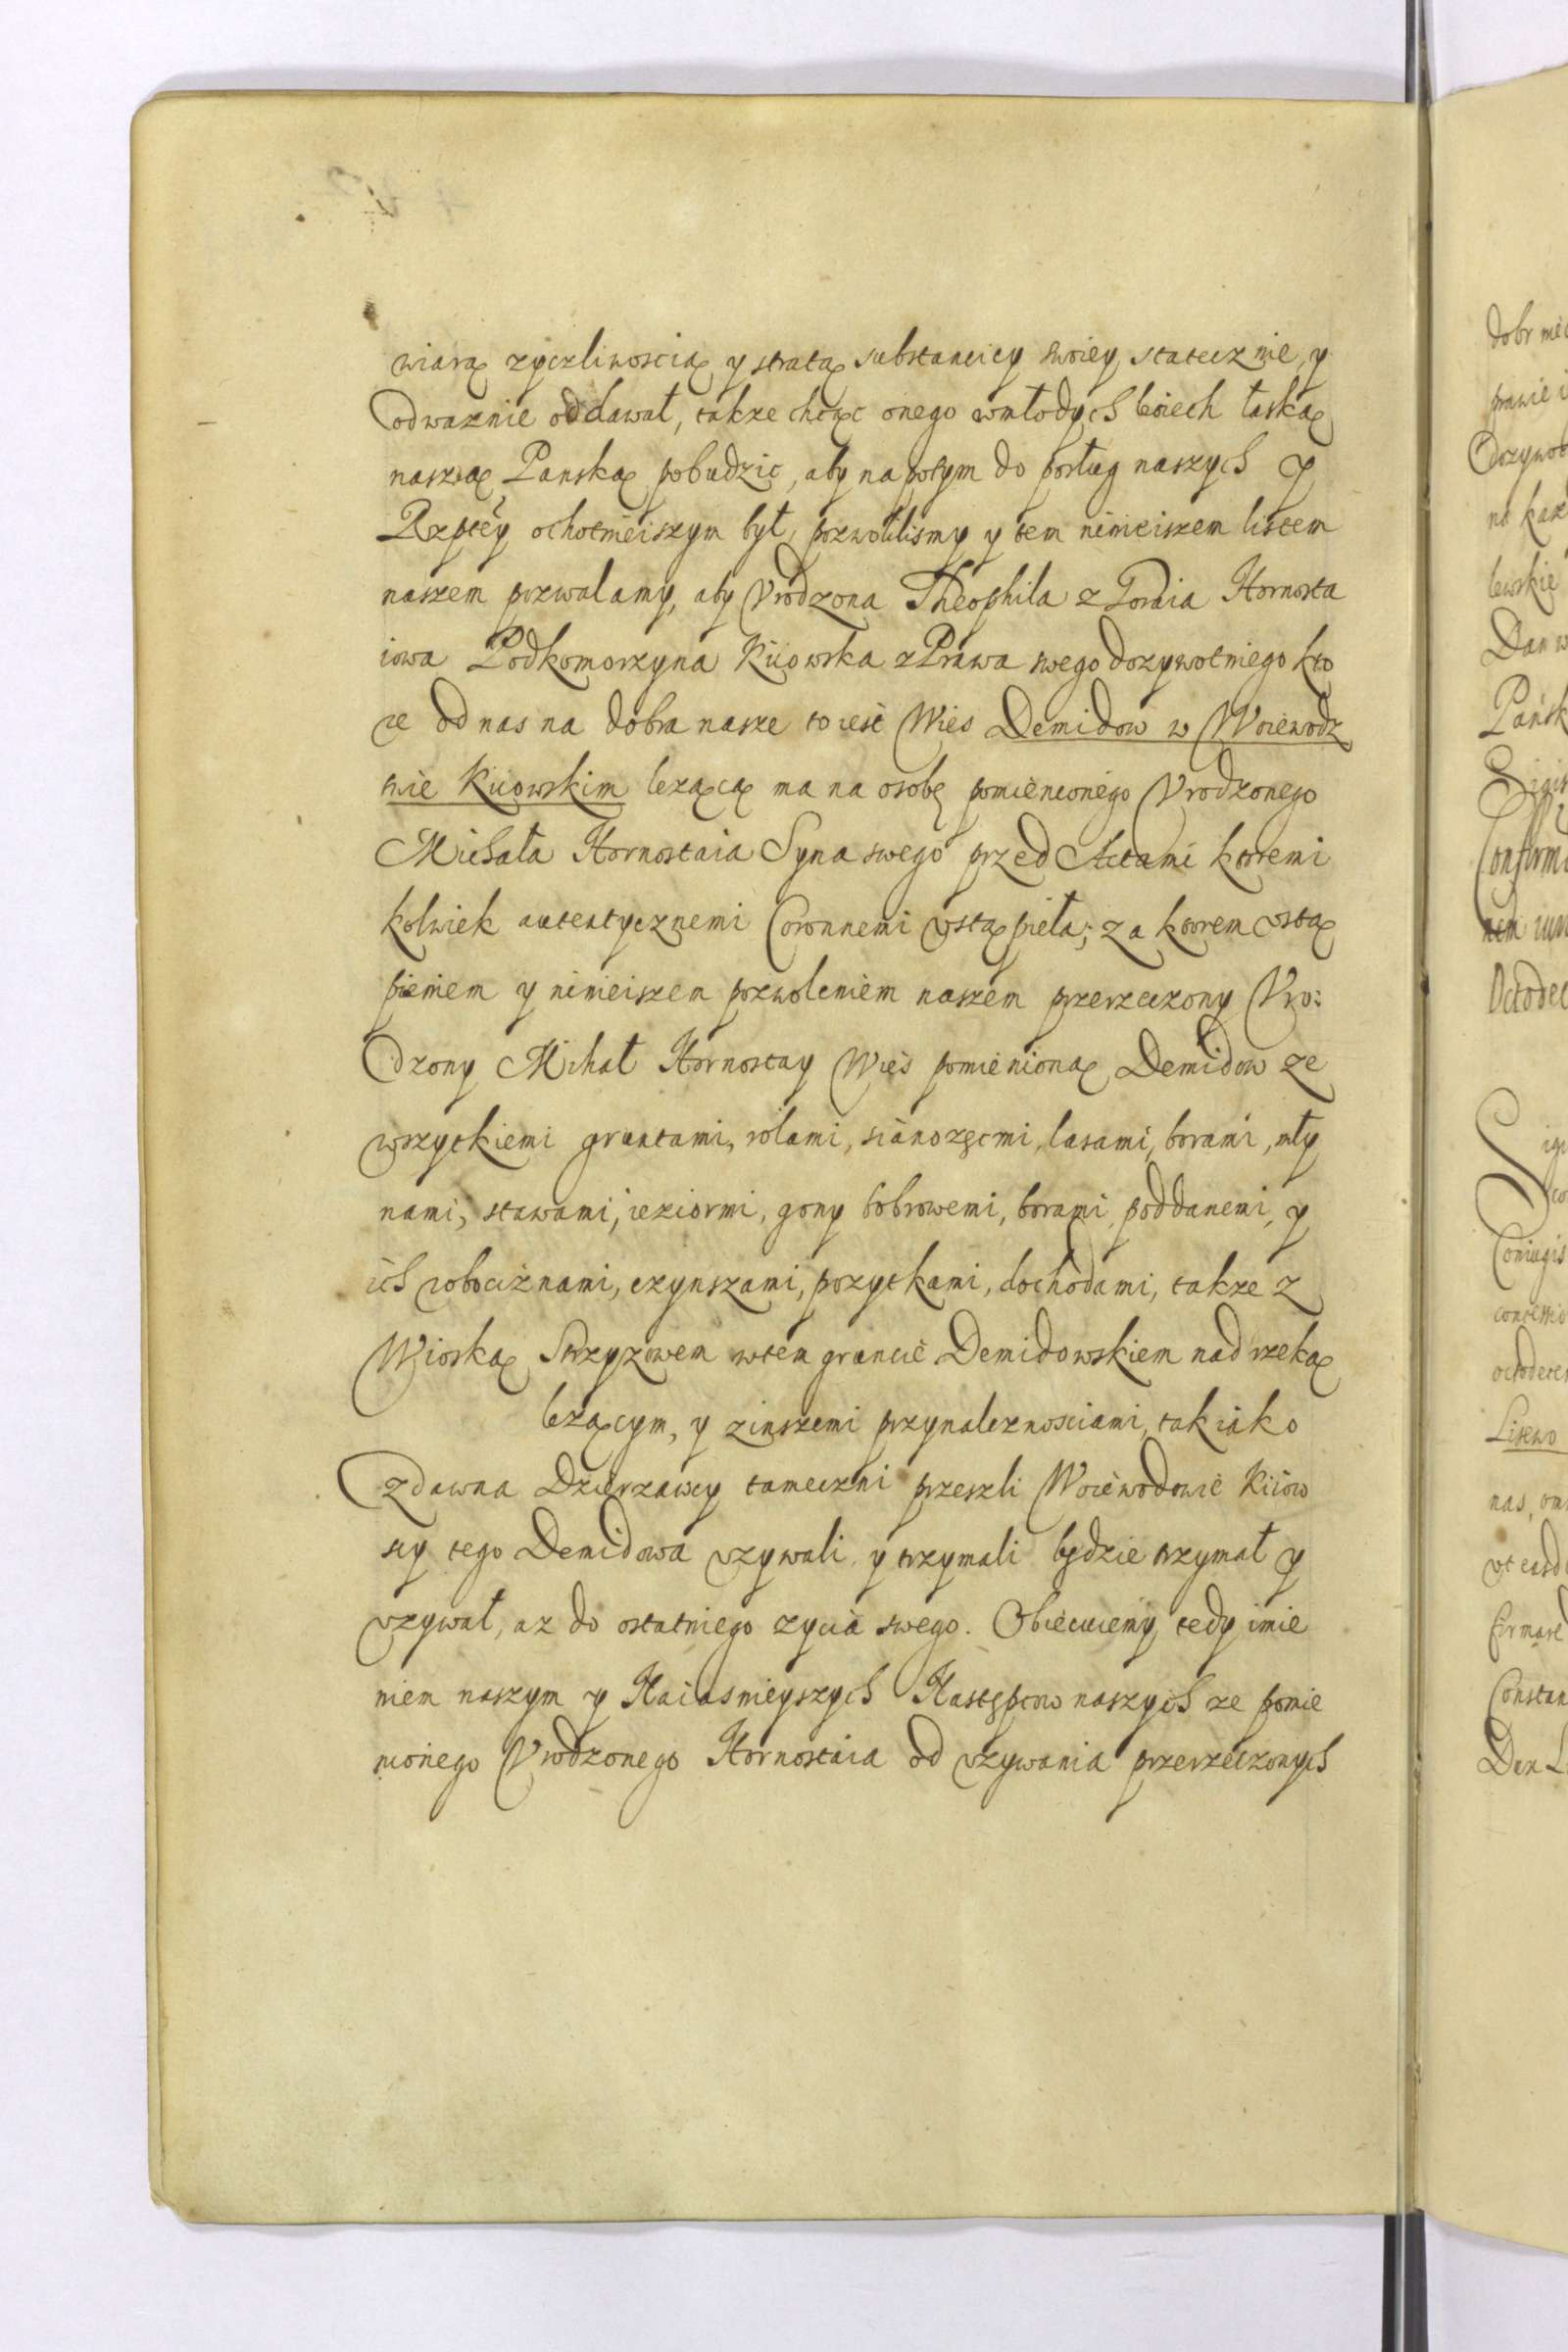 wiarą zyczliwoscią y stratą substanciey swoiey statecznie, y
odwaznie oddawał, takze chcąc onego wmłodych leciech łaską
naszą Panską pobudzic, aby napotym do posług naszych y
Rzptey ochotnieiszym był, pozwolilismy y tem ninieiszem listem
naszem pozwalamy, aby Vrodzona Theophila z Horaia Hornosta
iowa Podkomorzyna Kiiowska z Prawa swego dozywotniego kto
re od nas na dobra nasze to iest Wies Demidow w Woiewodz
twie Kiiowskim lezącą ma na osobę pomienionego Vrodzonego
Michała Hornostaia Syna swego przed Actami ktoremi
kolwiek autentycznemi Coronnemi vstąpieła; za ktorem vstą
pieniem y ninieiszem pozwoleniem naszem przerzeczony Vro:
dzony Michał Hornostay Wies pomienioną Demidow ze
wszytkiemi gruntami, rolami, sianozęcmi, lasami, borami, mły
nami, stawami, ieziormi, gony bobrowemi, borami, poddanemi, y
ich robociznami, czynszami, pozytkami, dochodami, takze z
Wioską Strzyzowem wtem gruncie Demidowskiem nad rzeką
lezącym, y zinszemi przynaleznosciami, tak iako
zdawna Dzierzawcy tameczni przeszli Woiewodowie Kiiow
scy tego Demidowa vzywali y trzymali będzie trzymał y
vzywał, az do ostatniego zycia swego. Obiecuiemy tedy imie
niem naszym y Naiasnieyszych Następcow naszych ze pomie
nionego Vrodzonego Hornostaia od vzywania przerzeczonych